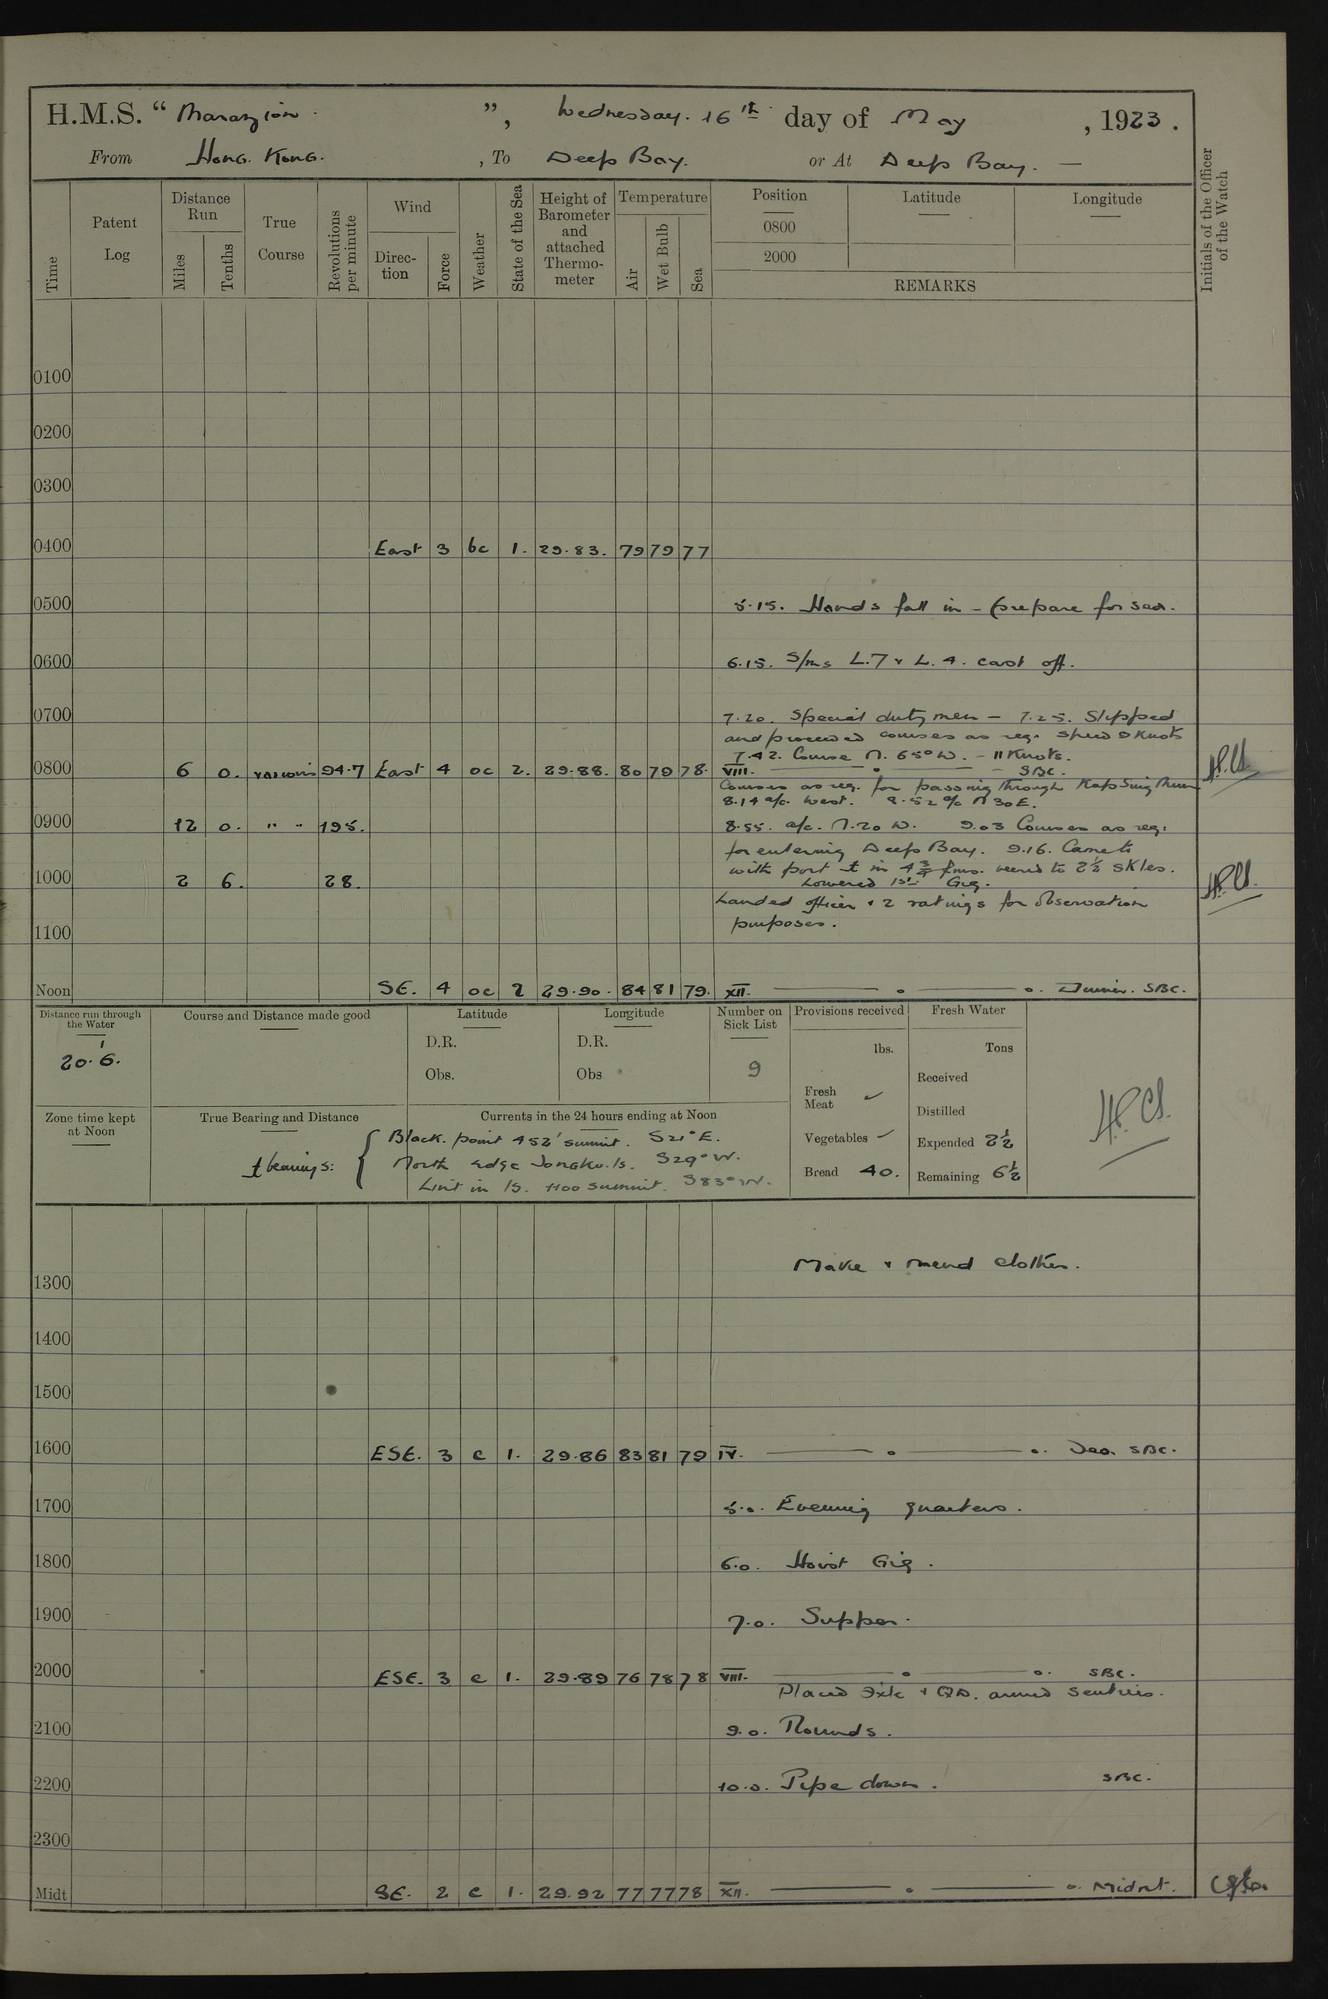 H.M.S. “ Marazion. ”, Wednesday. 16th day of May, 1923.
From Hong. Kong. , To Deep Bay. or At Deep Bay. —
Time
Patent Log
Distance Run
Miles
Tenths
True Course
Revolutions per minute
Wind
Direction
Force
Weather
State of the Sea
Height of Barometer and attached Thermometer
Temperature
Air
Wet Bulb
Sea
Position
0800
2000
Latitude
Longitude
REMARKS
Initials of the Officer of the Watch
0100
0200
0300
0400 East 3 bc 1. 29.83. 79 79 77
0500 5.15. Hands fall in - prepare for sea.
0600 6.15. S/ms L.7 & L.4. cast off.
0700 7.20. Special duty men — 7.25. Slipped
and proceeded courses as req. speed 9 knots
7.42. Course N. 65° W. - 11 Knots.
0800 6 0. various 94.7 East 4 oc 2. 29.88. 80 79 78. VIII. SBC.
Courses as req. for passing through Kap Sing Mun
8.14 a/c. West. 8.52 a/c N 30 E.
0900 12 0. " " 195. 8.55. a/c. N. 20 W. 9.03 Courses as req:
for entering Deep Bay. 9.16. Came to
with port in 4 3/4 fms. veered to 2 1/2 skles.
1000 2 6. 28. Lowered 1st Gig.
Landed officer & 2 ratings for observation
1100 purposes.
Noon SE. 4 oc 2 29.90. 84 81 79. XII. Dinner. SBC.
Distance run through the Water
20.6.
Course and Distance made good
Latitude
D.R.
Obs.
Longitude
D.R.
Obs
Number on Sick List
9
Provisions received
lbs.
Fresh Meat ✓
Vegetables ✓
Bread 40.
Fresh Water
Tons
Received
Distilled
Expended 2 1/2
Remaining 6 1/2
Zone time kept at Noon
True Bearing and Distance
Currents in the 24 hours ending at Noon
bearings:
Black. point 452' summit. S21°E.
North edge Is. S29°W.
Lint in Is. 1100 summit. S83°W.
Make & mend clothes.
1300
1400
1500
1600 ESE. 3 c 1. 29.86 83 81 79 IV. Tea. SBC.
1700 5.0. Evening quarters.
1800 6.0. Hoist Gig.
1900 7.0. Supper.
2000 ESE. 3 c 1. 29.89 76 78 78 VIII. SBC.
Placed & QD. armed Sentries.
2100 9.0. Rounds.
2200 10.0. Pipe down. SBC.
2300
Midt SE. 2 c 1. 29.92 77 77 78 XII. Midnt.